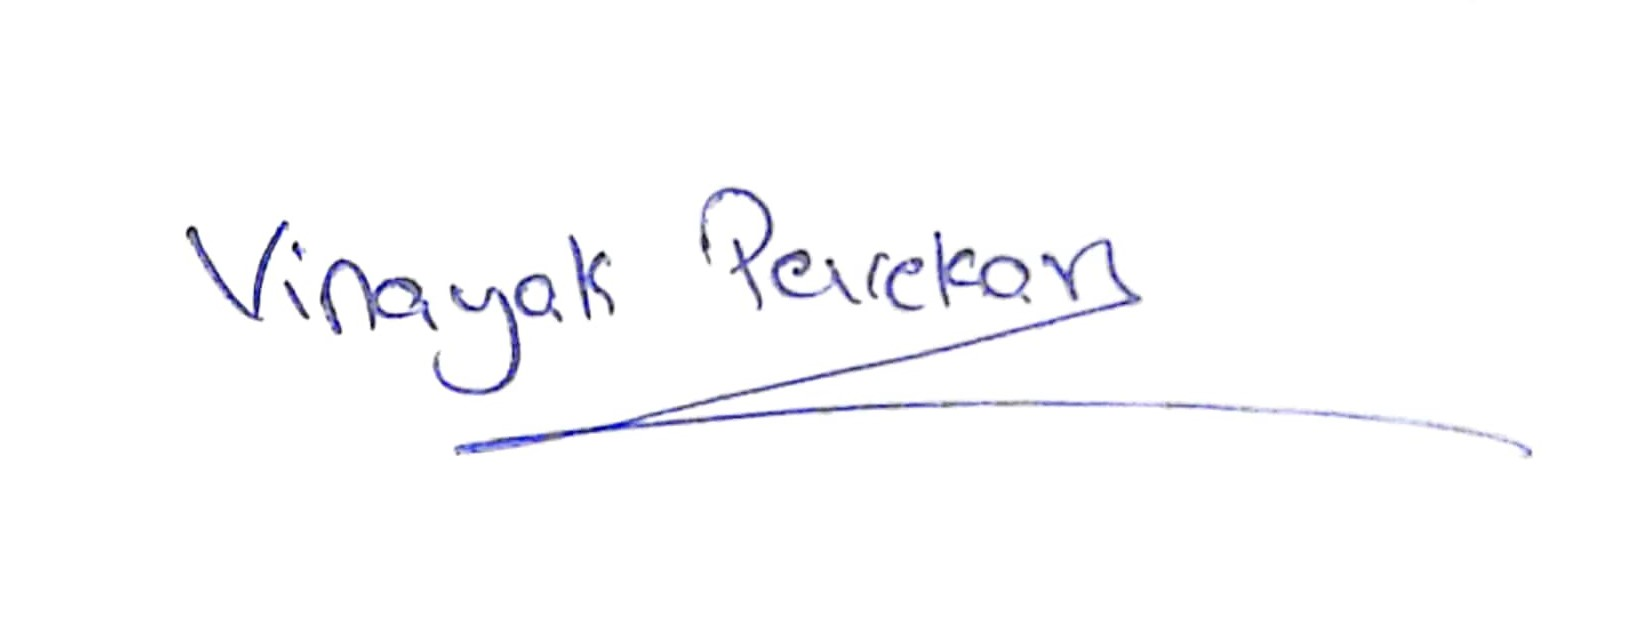 Vinayak Perekar